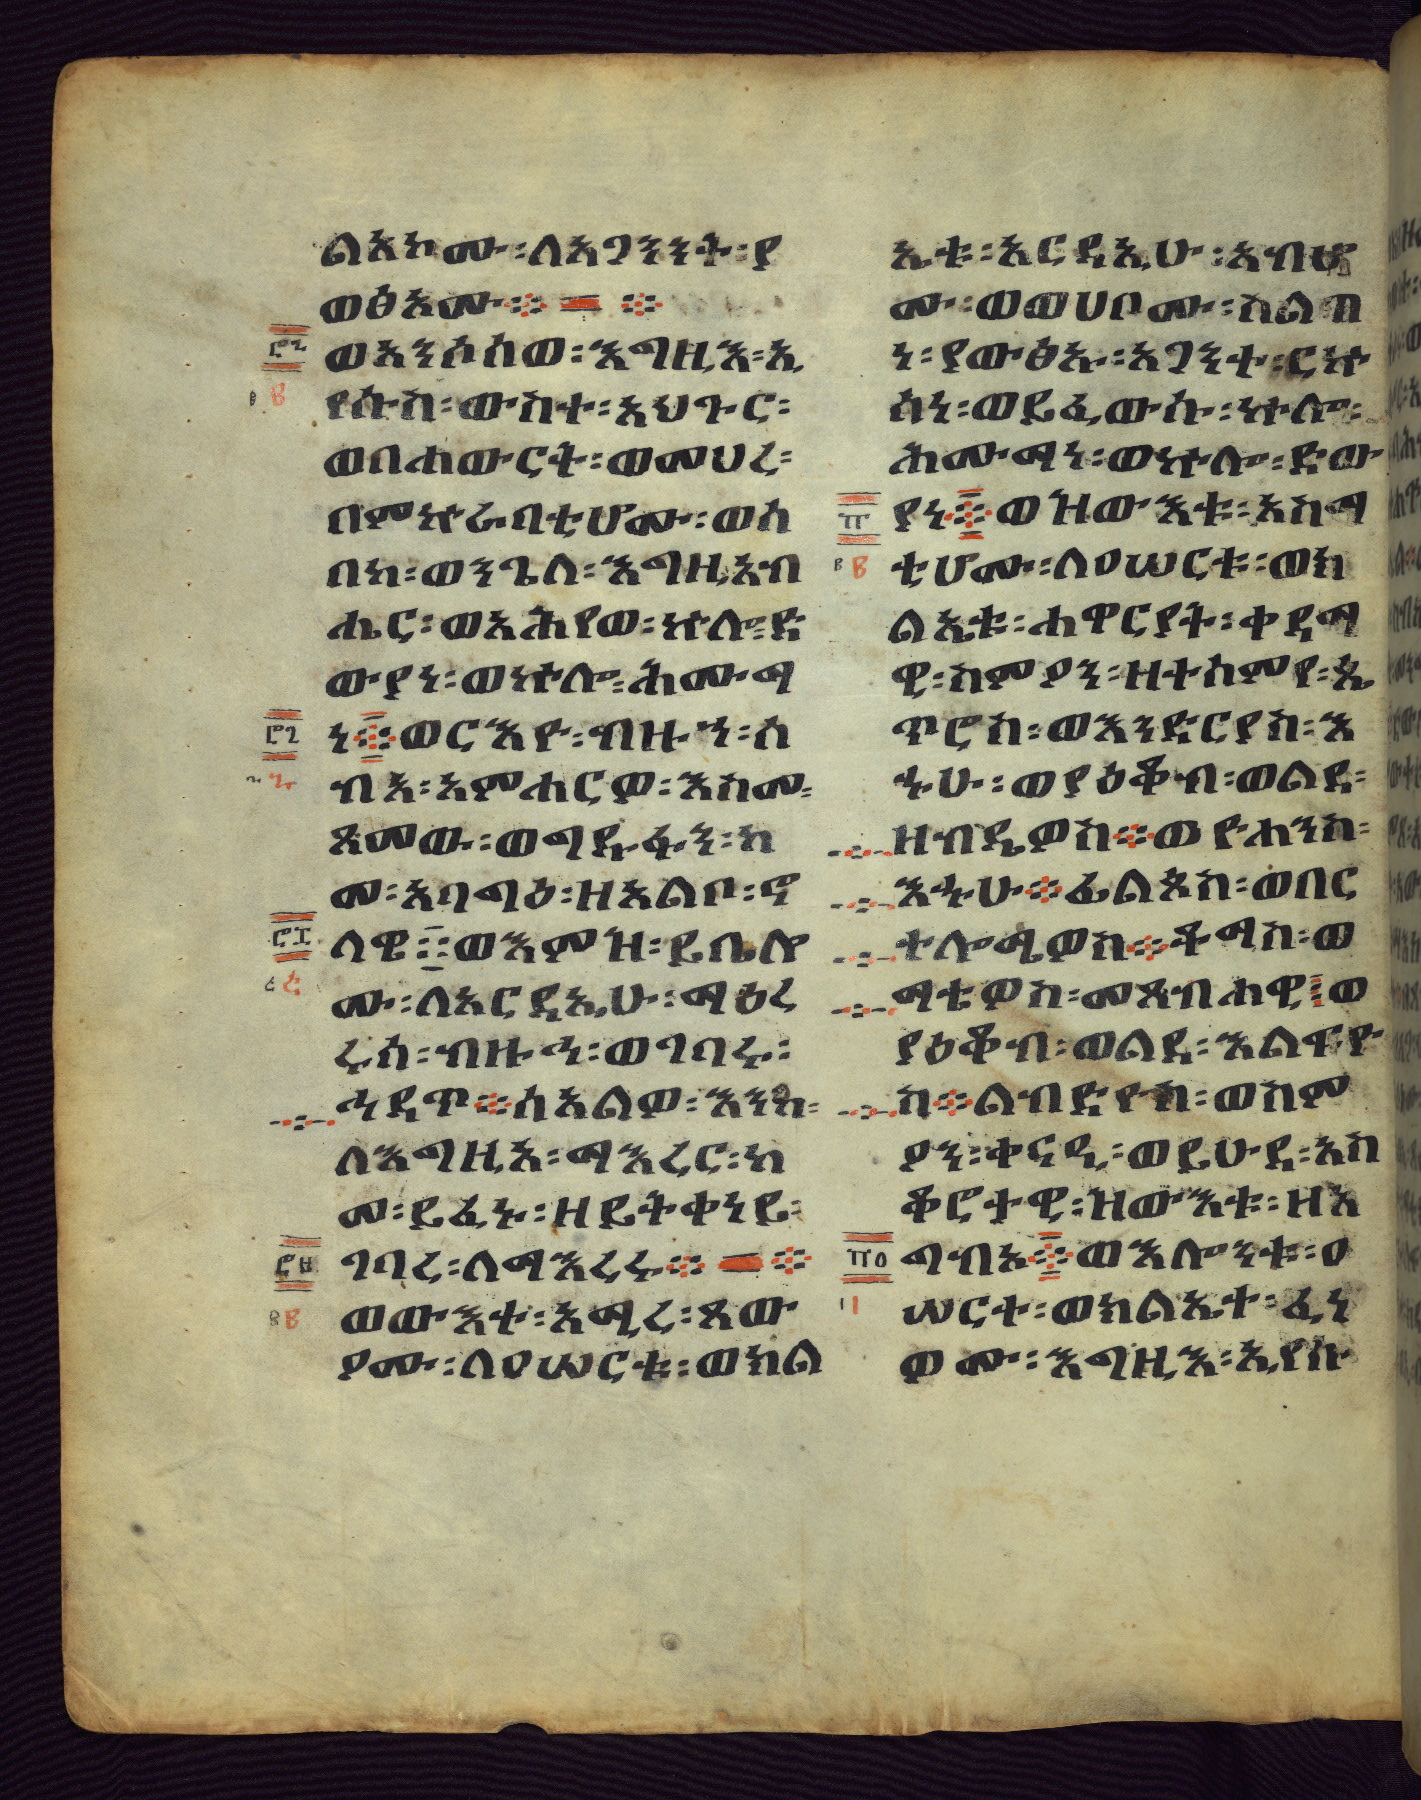 ልአክሙ፡ለአጋንንት፡ያ
ወፅአሙ፨ ፨
ወአንሶሰወ፡እግዚእ፡ኢ
የሱስ፡ውስተ፡አህጉር፡
ወበሐውርት፡ወመሀረ፡
በምኵራባቲሆሙ፡ወሰ
በከ፡ወንጌለ፡እግዚአብ
ሔር፡ወአሕየወ፡ኵሎ፡ድ
ውያነ፡ወኵሎ፡ሕሙማ
ነ፨ወርእዮ፡ብዙኀ፡ሰ
ብአ፡አምሐርዎ፡እስመ፡
ጻመው፡ወግዱፋን፡ከ
መ፡አባግዕ፡ዘአልቦ፡ኖ
ላዊ፨ወእምዝ፡ይቤሎ
ሙ፡ለአርዳኢሁ፡ማዕረ
ሩሰ፡ብዙኅ፡ወገባሩ፡
ኅዳጥ፨ሰአልዎ፡እንከ፡
ለእግዚአ፡ማእረር፡ከ
መ፡ይፈኑ፡ዘይትቀነይ፡
ገባረ፡ለማእረሩ፨ ፨
ወውእቱ፡አሚረ፡ጸው
ዖሙ፡ለዐሠርቱ፡ወክል
ኤቱ፡አርዳኢሁ፡አብሖ
ሙ፡ወወሀቦሙ፡ስልጣ
ነ፡ያውፅኡ፡አጋንተ፡ርኩ
ሳነ፡ወይፈውሱ፡ኵሎ፡
ሕሙማነ፡ወኵሎ፡ድው
ያነ፨ወዝውእቱ፡አስማ
ቲሆሙ፡ለዐሠርቱ፡ወክ
ልኤቱ፡ሐዋርያት፡ቀዳማ
ዊ፡ስምዖን፡ዘተሰምየ፡ጴ
ጥሮስ፡ወእንድርያስ፡እ
ኁሁ፡ወያዕቆብ፡ወልደ፡
ዘብዴዎስ፨ወዮሐንስ፡
እኁሁ፨ፊልጶስ፡ወበር
ተሎሜዎስ፨ቶማስ፡ወ
ማቴዎስ፡መጸብሐዊ፤ወ
ያዕቆብ፡ወልደ፡እልፍዮ
ስ፨ልብድዮስ፡ወስም
ዖን፡ቀናዊ፡ወይሁዳ፡አስ
ቆሮቱዊ፡ዝውእቱ፡ዘአ
ግብአ፨ወእሎንቱ፡ዐ
ሠርተ፡ወክልኤተ፡ፈነ
ዎሙ፡እግዚእ፡ኢየሱ